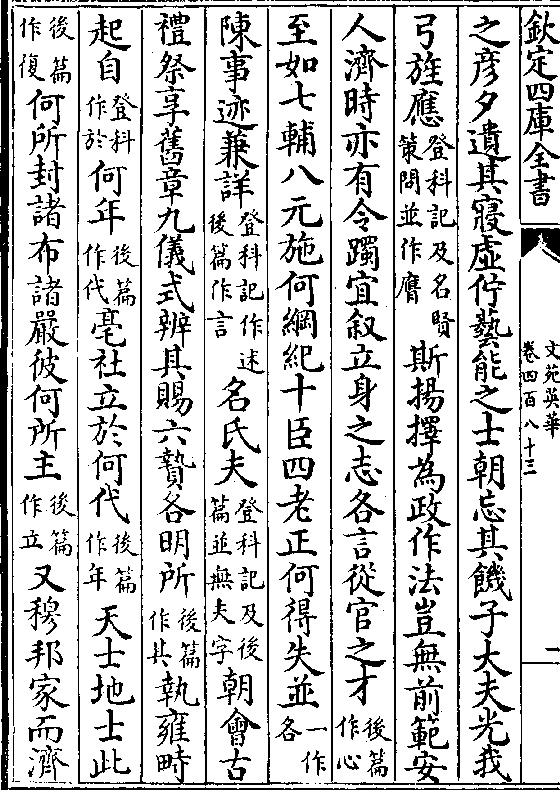 欽定四庫全書
文苑英華
卷四百八十三
一
之彦夕遺其寢虛佇藝能之士朝忘其饑子大夫光我
弓旌應登科記及名賢策問並作膺斯揚擇為政作法豈無前範安
人濟時亦有令躅宜叙立身之志各言從官之才後篇作心
至如七輔八元施何綱紀十臣四老正何得失並一作各
陳事迹兼詳登科記作述後篇作言名氏夫登科記及後篇並無夫字朝會古
禮祭享舊章九儀式辨其賜六贄各明所後篇作其執雍畤
起自登科作於何年後篇作代亳社立於何代後篇作年天士地士此
後篇作復何所封諸布諸嚴彼何所主後篇作立又穆邦家而濟